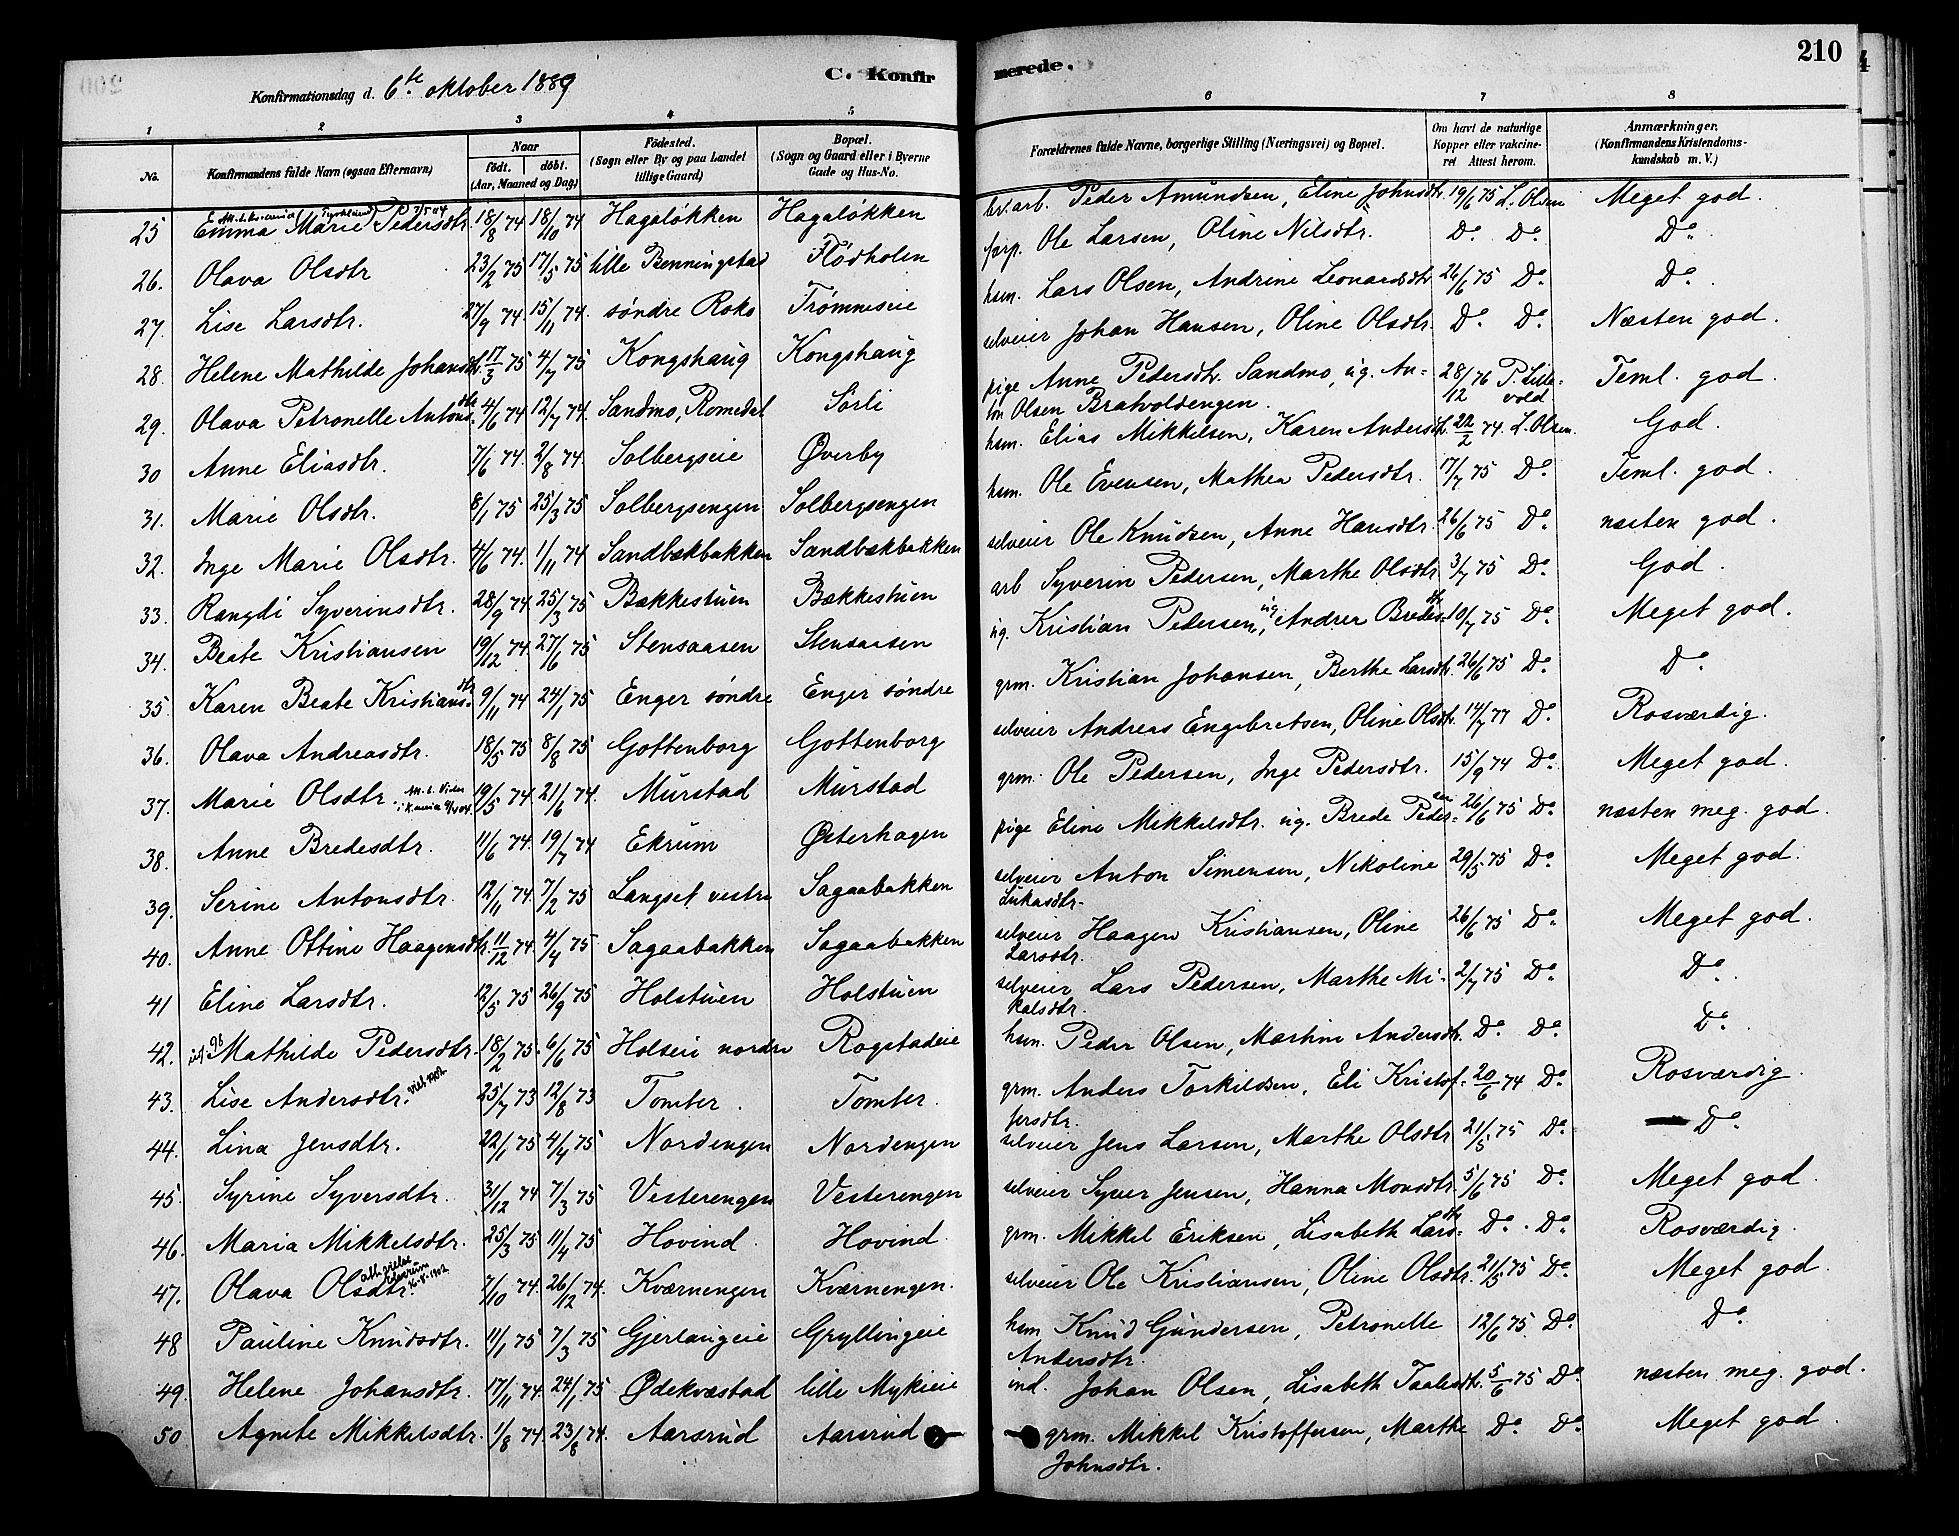 Konfirmationsdag d. 6te oktober 1889
C. Konfir
merede.
210
1 2 3 4 5 6 7 8
No. Konfirmandens fulde Navn (ogsaa Efternavn) Naar født. døbt. (Aar, Maaned og Dag) Fødested. (Sogn eller By og paa Landet tillige Gaard) Bopæl. (Sogn og Gaard eller i Byerne Gade og Hus-No. Forældrenes fulde Navne, borgerlige Stilling (Næringsvei) og Bopæl. Om havt de naturlige Kopper eller vakcineret Attest herom. Anmærkninger. (Konfirmandens Kristendomskundskab m. V.)
25 Emma Marie Pedersdtr. 18/8 74 18/10 74 Hagaløkken Hagaløkken brv.arb. Peder Amundsen, Eline Johnsdtr. 19/6 75 L. Olsen Meget god.
26. Olava Olsdtr 23/2 75 17/5 75 lille Benningstad Flødholen forp. Ole Larsen, Oline Nilsdtr. Do Do Do.
27. Lise Larsdtr. 27/9 74. 15/11 74. søndre Roko Trømmeseie hsm. Lars Olsen, Andrine Leonardsdtr 26/6 75 Do. Do.
28. Helene Mathilde Johansdtr. 17/3 75 4/7 75 Kongshaug Kongshaug selveier Johan Hansen, Oline Olsdtr. Do Do. Næsten god.
29. Olava Petronelle Antonsdtr. 4/6 74 12/7 74. Sandmo, Romedal Sørli pige Anne Pedersdtr. Sandmo, ug. Anton Olsen Bratvoldengen. 28/12 76 P. Lillevold Teml. god.
30 Anne Eliasdtr. 7/6 74. 2/8 74. Solbergseie Øverby hsm. Elias Mikkelsen, Karen Andersdt. 22/2 74. L. Olsen. God.
31. Marie Olsdtr. 8/1 75 25/3 75 Solbergsengen Solbergsengen hsm. Ole Evensen, Mathea Pedersdtr. 17/7 75 Do Teml. god.
32. Inge Marie Olsdtr. 4/6 74. 1/11 74 Sandbækbakken Sandbækbakken selveier Ole Knudsen, Anne Hansdtr. 26/6 75 Do. næsten god.
33. Rangdi Syverinsdtr. 28/9 74. 25/3 75 Bækkestuen Bækkestuen arb Syverin Pedersen, Marthe Olsdtr 3/7 75 Do. God.
34. Beate Kristiansen 19/12 74. 27/6 75 Stensaasen Stensaasen ug. Kristian Pedersen, ug. Andrea Bredesdtr. 10/7 75 Do. Meget god.
35. Karen Beate Kristiansdtr. 9/11 74 24/1 75 Enger søndre Enger søndre grm. Kristian Johansen, Berthe Larsdtr. 26/6 75 Do. Do.
36. Olava Andreasdtr. 18/5 75 8/8 75 Gottenborg Gottenborg selveier Andreas Engebretsen, Oline Olsdtr. 14/7 77 Do. Rosværdig.
37. Marie Olsdtr. 19/5 74. 21/6 74. Murstad Murstad grm. Ole Pedersen, Inge Pedersdtr. 15/9 74 Do. Meget god.
38. Anne Bredesdtr. 11/6 74. 19/7 74 Ekrum Østerhagen pige Eline Mikkelsdtr. ug. Brede Pedersen 26/6 75 Do næsten meg. god.
39. Serine Antonsdtr. 12/11 74. 7/2 75 Langset vestre Sagaabakken selveier Anton Simensen, Nikoline Lukasdtr. 29/5 75 Do. Meget god.
40. Anne Ottine Haagensdtr. 11/12 74 4/4 75 Sagaabakken Sagaabakken selveier Haagen Kristiansen, Oline Larsdtr. 26/6 75 Do. Meget god.
41 Eline Larsdtr. 12/5 75 26/9 75 Holstuen Holstuen selveier Lars Pedersen, Marthe Mikalsdtr. 2/7 75 Do. Do.
42. Mathilde Pedersdtr. 18/2 75. 6/6 75 Holseie nordre Rogstadeie hsm. Peder Olsen, Martine Andersdtr. Do. Do. Do.
43. Lise Andersdtr. viet 1902 25/7 73 12/8 73 Tomter. Tomter. grm. Anders Torkildsen, Eli Kristoffersdtr. 20/6 74 Do. Rosværdig.
44. Lina Jensdtr. 22/1 75 4/4 75 Nordengen Nordengen selveier Jens Larsen, Marthe Olsdtr 21/5 75 Do. Do.
45. Syrine Syversdtr. 31/12 74 7/3 75 Vesterengen Vesterengen selveier Syver Jensen, Hanna Monsdtr. 5/6 75 Do. Meget god.
46. Maria Mikkelsdtr. 25/3 75 11/4 75 Hovind. Hovind. grm. Mikkel Eriksen, Lisabeth Larsdtr. Do. Do. Rosværdig.
47. Olava Olsdtr. 7/10 74. 26/12 74. Kværnengen Kværnengen. selveier Ole Kristiansen, Oline Olsdtr. 21/5 75 Do. Meget god.
48 Pauline Knudsdtr. 11/1 75 7/3 75 Gjerlaugeie Gryllingeie hsm Knud Gundersen, Petronelle Andersdtr. 12/6 75 Do. Do.
49. Helene Johansdtr. 17/11 74. 24/1 75 Ødekvæstad lille Mykieie ind. Johan Olsen, Lisabeth Taalesdtr. 5/6 75 Do. næsten meg. god.
50 Agnete Mikkelsdtr. 1/8 74. 23/8 74. Aarsrud Aarsrud grm. Mikkel Kristoffersen, Marthe Johnsdtr. Do Do. Meget god.